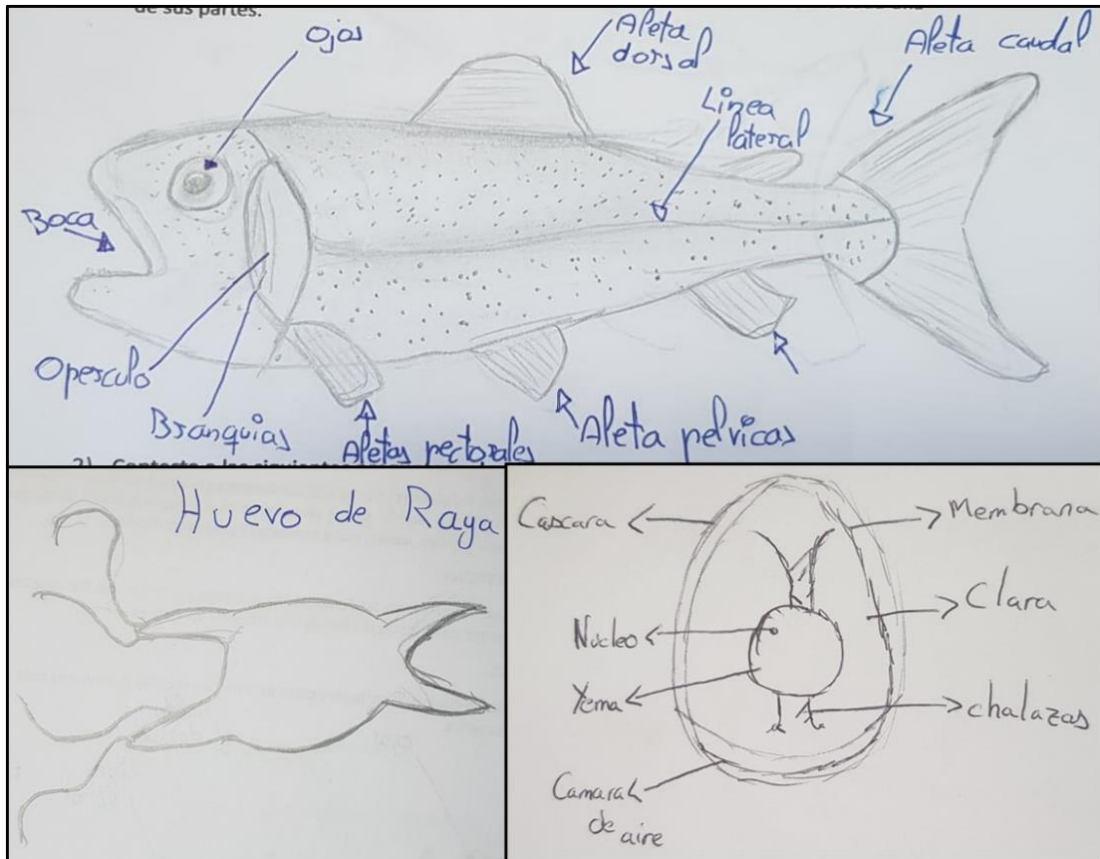 de sus partes.
Ojos
Aleta
dorsal
Aleta caudal
Linea
lateral
Boca
Operculo
Branquias
Aletas pectorales
Aleta pelvicas
Huevo de Raya
Cascara
Membrana
Clara
Nucleo
Yema
chalazas
Camara
de aire